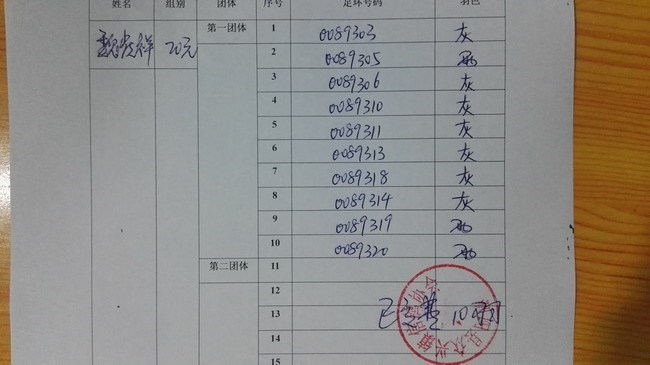 姓名 组别 团体 序号 足环号码 羽色
第一团体 1 0089303 灰
20元 2 0089305
3 0089306 灰
4 0089310 灰
5 0089311 灰
6 0089313 灰
7 0089318 灰
8 0089314 灰
9 0089319
10 0089320
第二团体 11
12
13 10羽
14
15